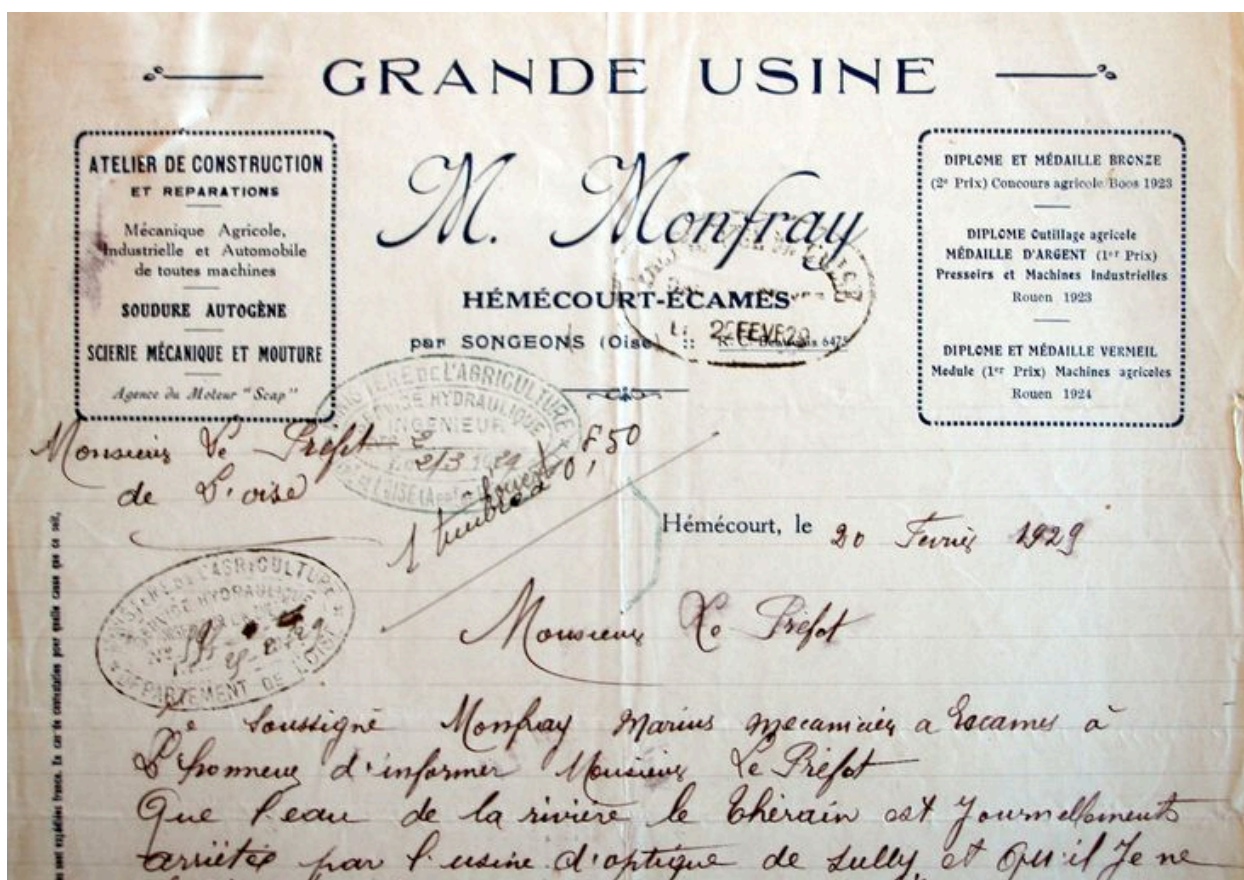 GRANDE USINE
ATELIER DE CONSTRUCTION
ET REPARATIONS
Mécanique Agricole,
Industrielle et Automobile
de toutes machines
SOUDURE AUTOGÈNE
SCIERIE MÉCANIQUE ET MOUTURE
Agence du Moteur "Scap"
M. Monfray
HÉMÉCOURT-ÉCAMES
par SONGEONS (Oise) :: R. C. Beauvais 6475
2 FEVE 29
DIPLOME ET MÉDAILLE BRONZE
(2e Prix) Concours agricole Boos 1923
DIPLOME Outillage agricole
MÉDAILLE D'ARGENT (1er Prix)
Pressoirs et Machines Industrielles
Rouen 1923
DIPLOME ET MÉDAILLE VERMEIL
Medule (1er Prix) Machines agricoles
Rouen 1924
MINISTÈRE DE L'AGRICULTURE
HYDRAULIQUE
INGENIEUR
2/3 1929
Monsieur Le Préfet
de L'oise
1 timbre à 0,F50
Hémécourt, le 20 Fevrier 1929
MINISTÈRE DE L'AGRICULTURE
SERVICE HYDRAULIQUE
DÉPARTEMENT DE L'OISE
Monsieur Le Préfet
Je Soussigné Monfray Marius mecanicien a Escames à
L'honneur d'informer Monsieur Le Préfet
Que l'eau de la rivière le Thérain est Journellements
arriêtée par l'usine d'optique de Sully et Qu'il Je ne
sont expédiées franco. En cas de contestation pour quelle cause que ce soit,